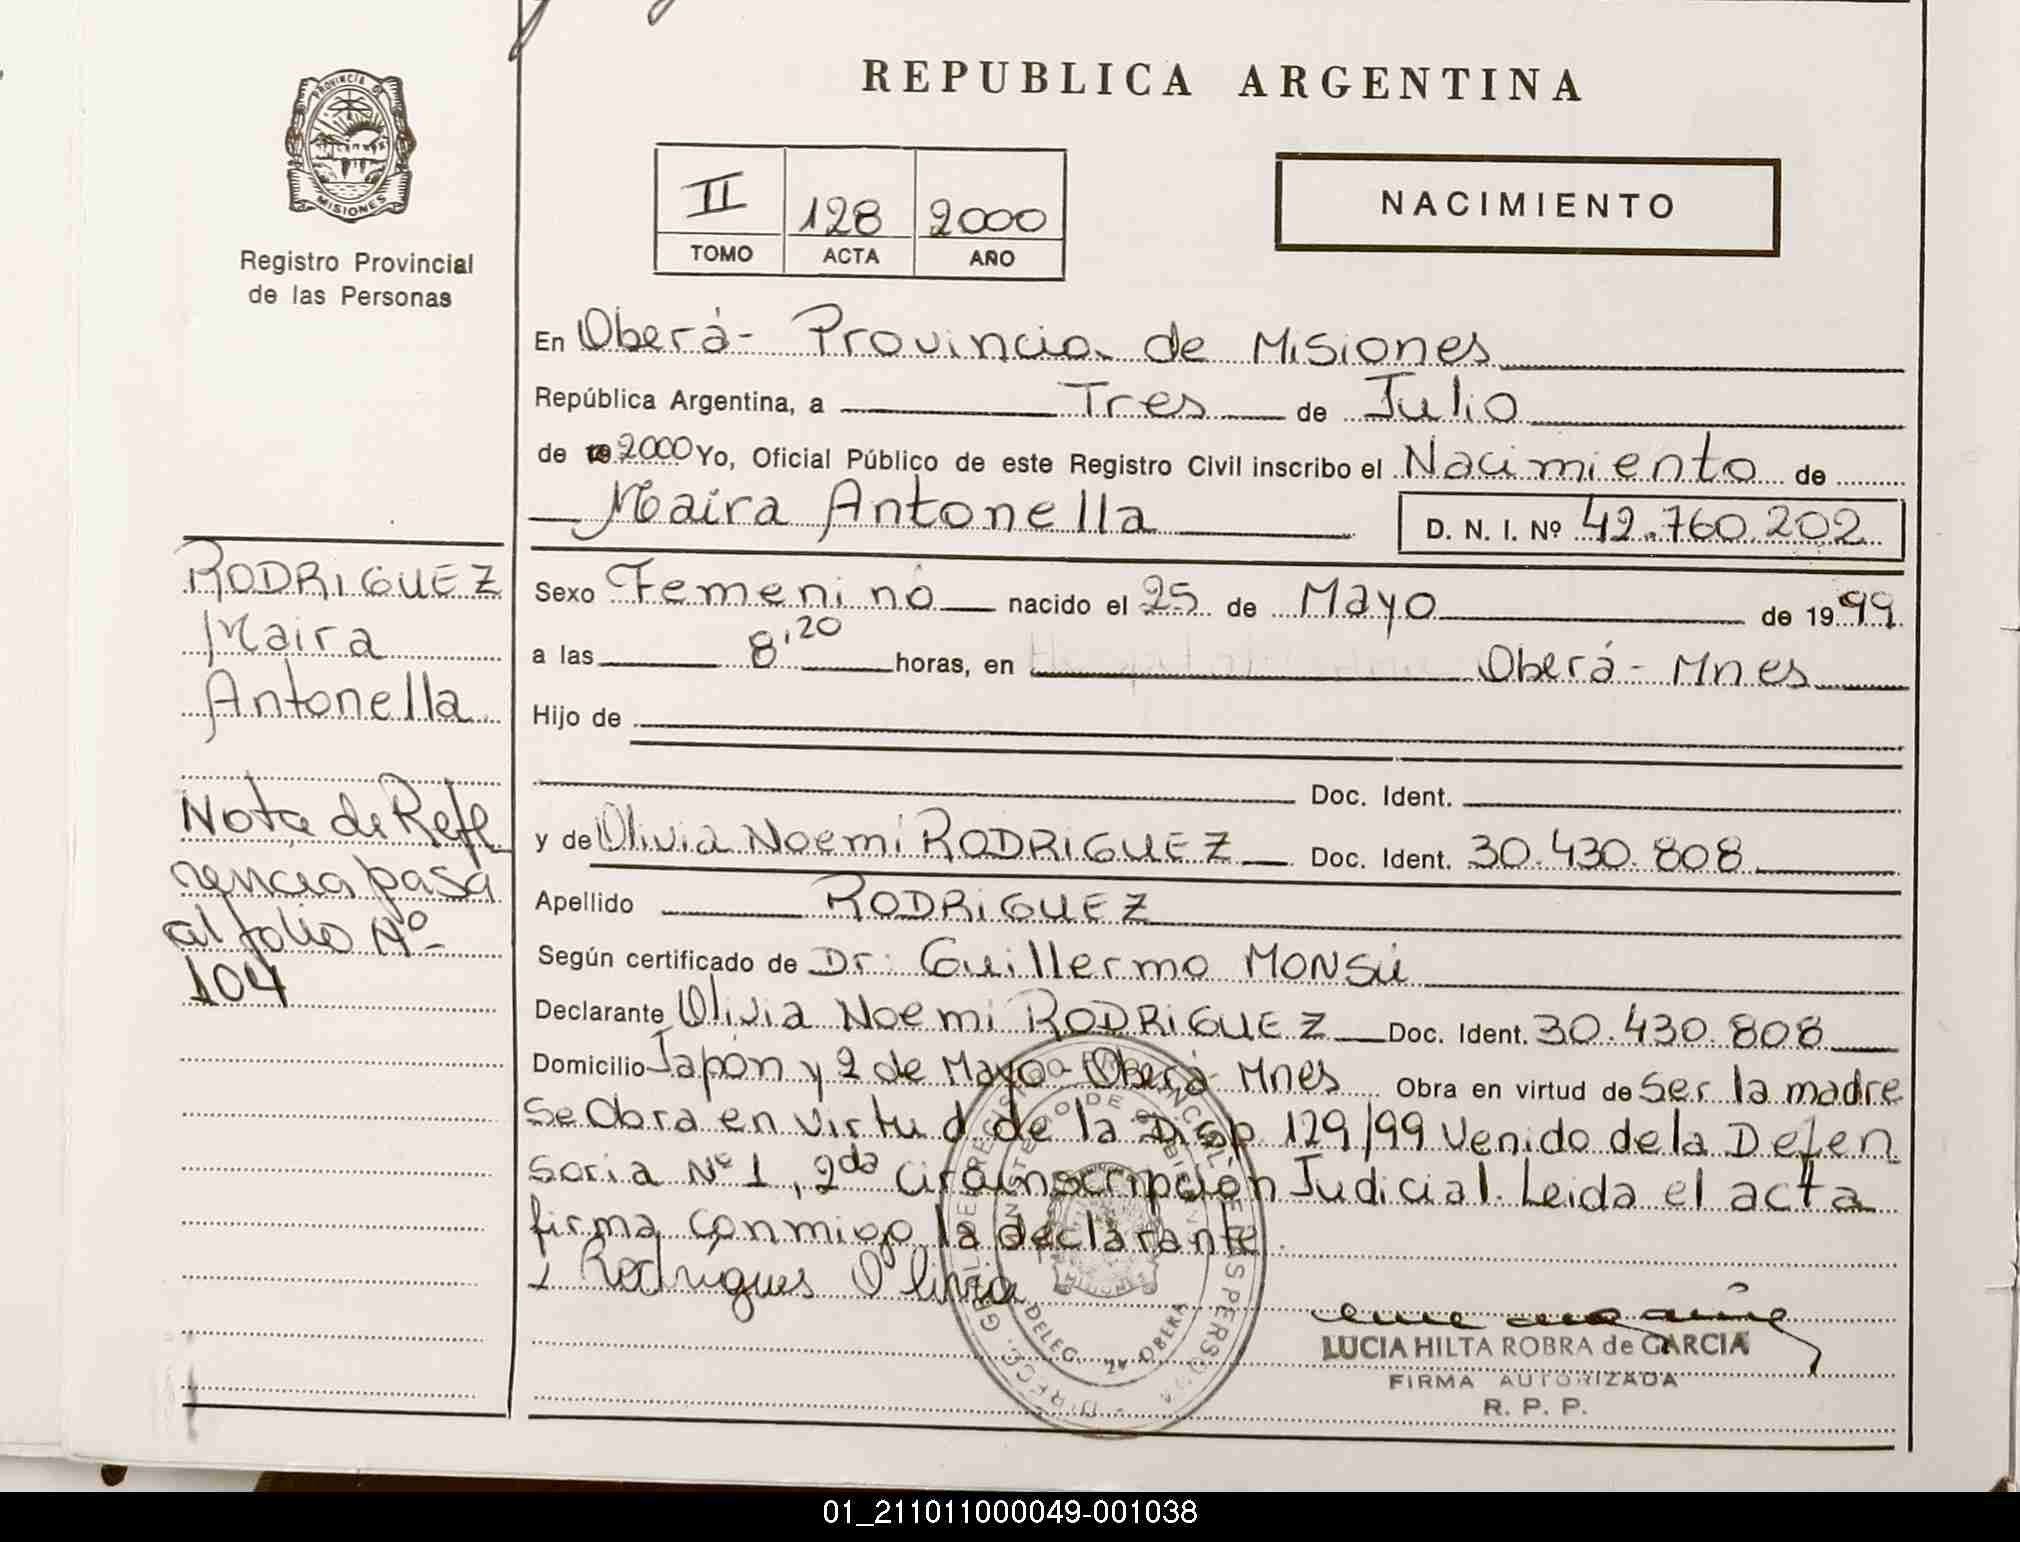 REPUBLICA ARGENTINA
PROVINCIA DE
MISIONES
Registro Provincial
de las Personas
II 128 2000
TOMO ACTA AÑO
NACIMIENTO
En Oberá- Provincia de Misiones
República Argentina, a Tres de Julio
de 2000 Yo, Oficial Público de este Registro Civil inscribo el Nacimiento de
Maira Antonella D. N. I. Nº 42.760.202
RODRIGUEZ
Maira
Antonella
Nota de Refe
rencia pasa
al folio Nº
104
Sexo Femenino nacido el 25 de Mayo de 1999
a las 8,20 horas, en Oberá- Mnes
Hijo de
Doc. Ident.
y de Olivia Noemi RODRIGUEZ Doc. Ident. 30.430.808
Apellido RODRIGUEZ
Según certificado de Dr. Guillermo MONSÚ
Declarante Olivia Noemi RODRIGUEZ Doc. Ident. 30.430.808
Domicilio Japón y 2 de Mayo- Oberá- Mnes Obra en virtud de Ser la madre
Se Obra en virtud de la Disp 129/99 Venido de la Defen
soria Nº 1, 2da Circunscripción Judicial. Leida el acta
firma conmigo la declarante.
Rodrigues Olivia
DELEG. OBERA
LUCIA HILTA ROBRA de GARCIA
FIRMA AUTORIZADA
R. P. P.
01_211011000049-001038